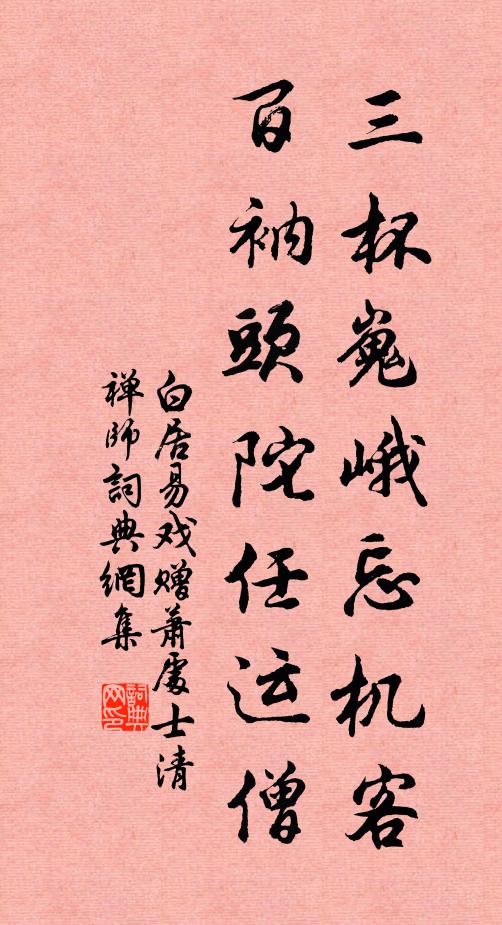 三杯嵬峨忘机客
百衲頭陀任运僧
白居易戏赠萧處士清
禅师詞典網集
詞典网印